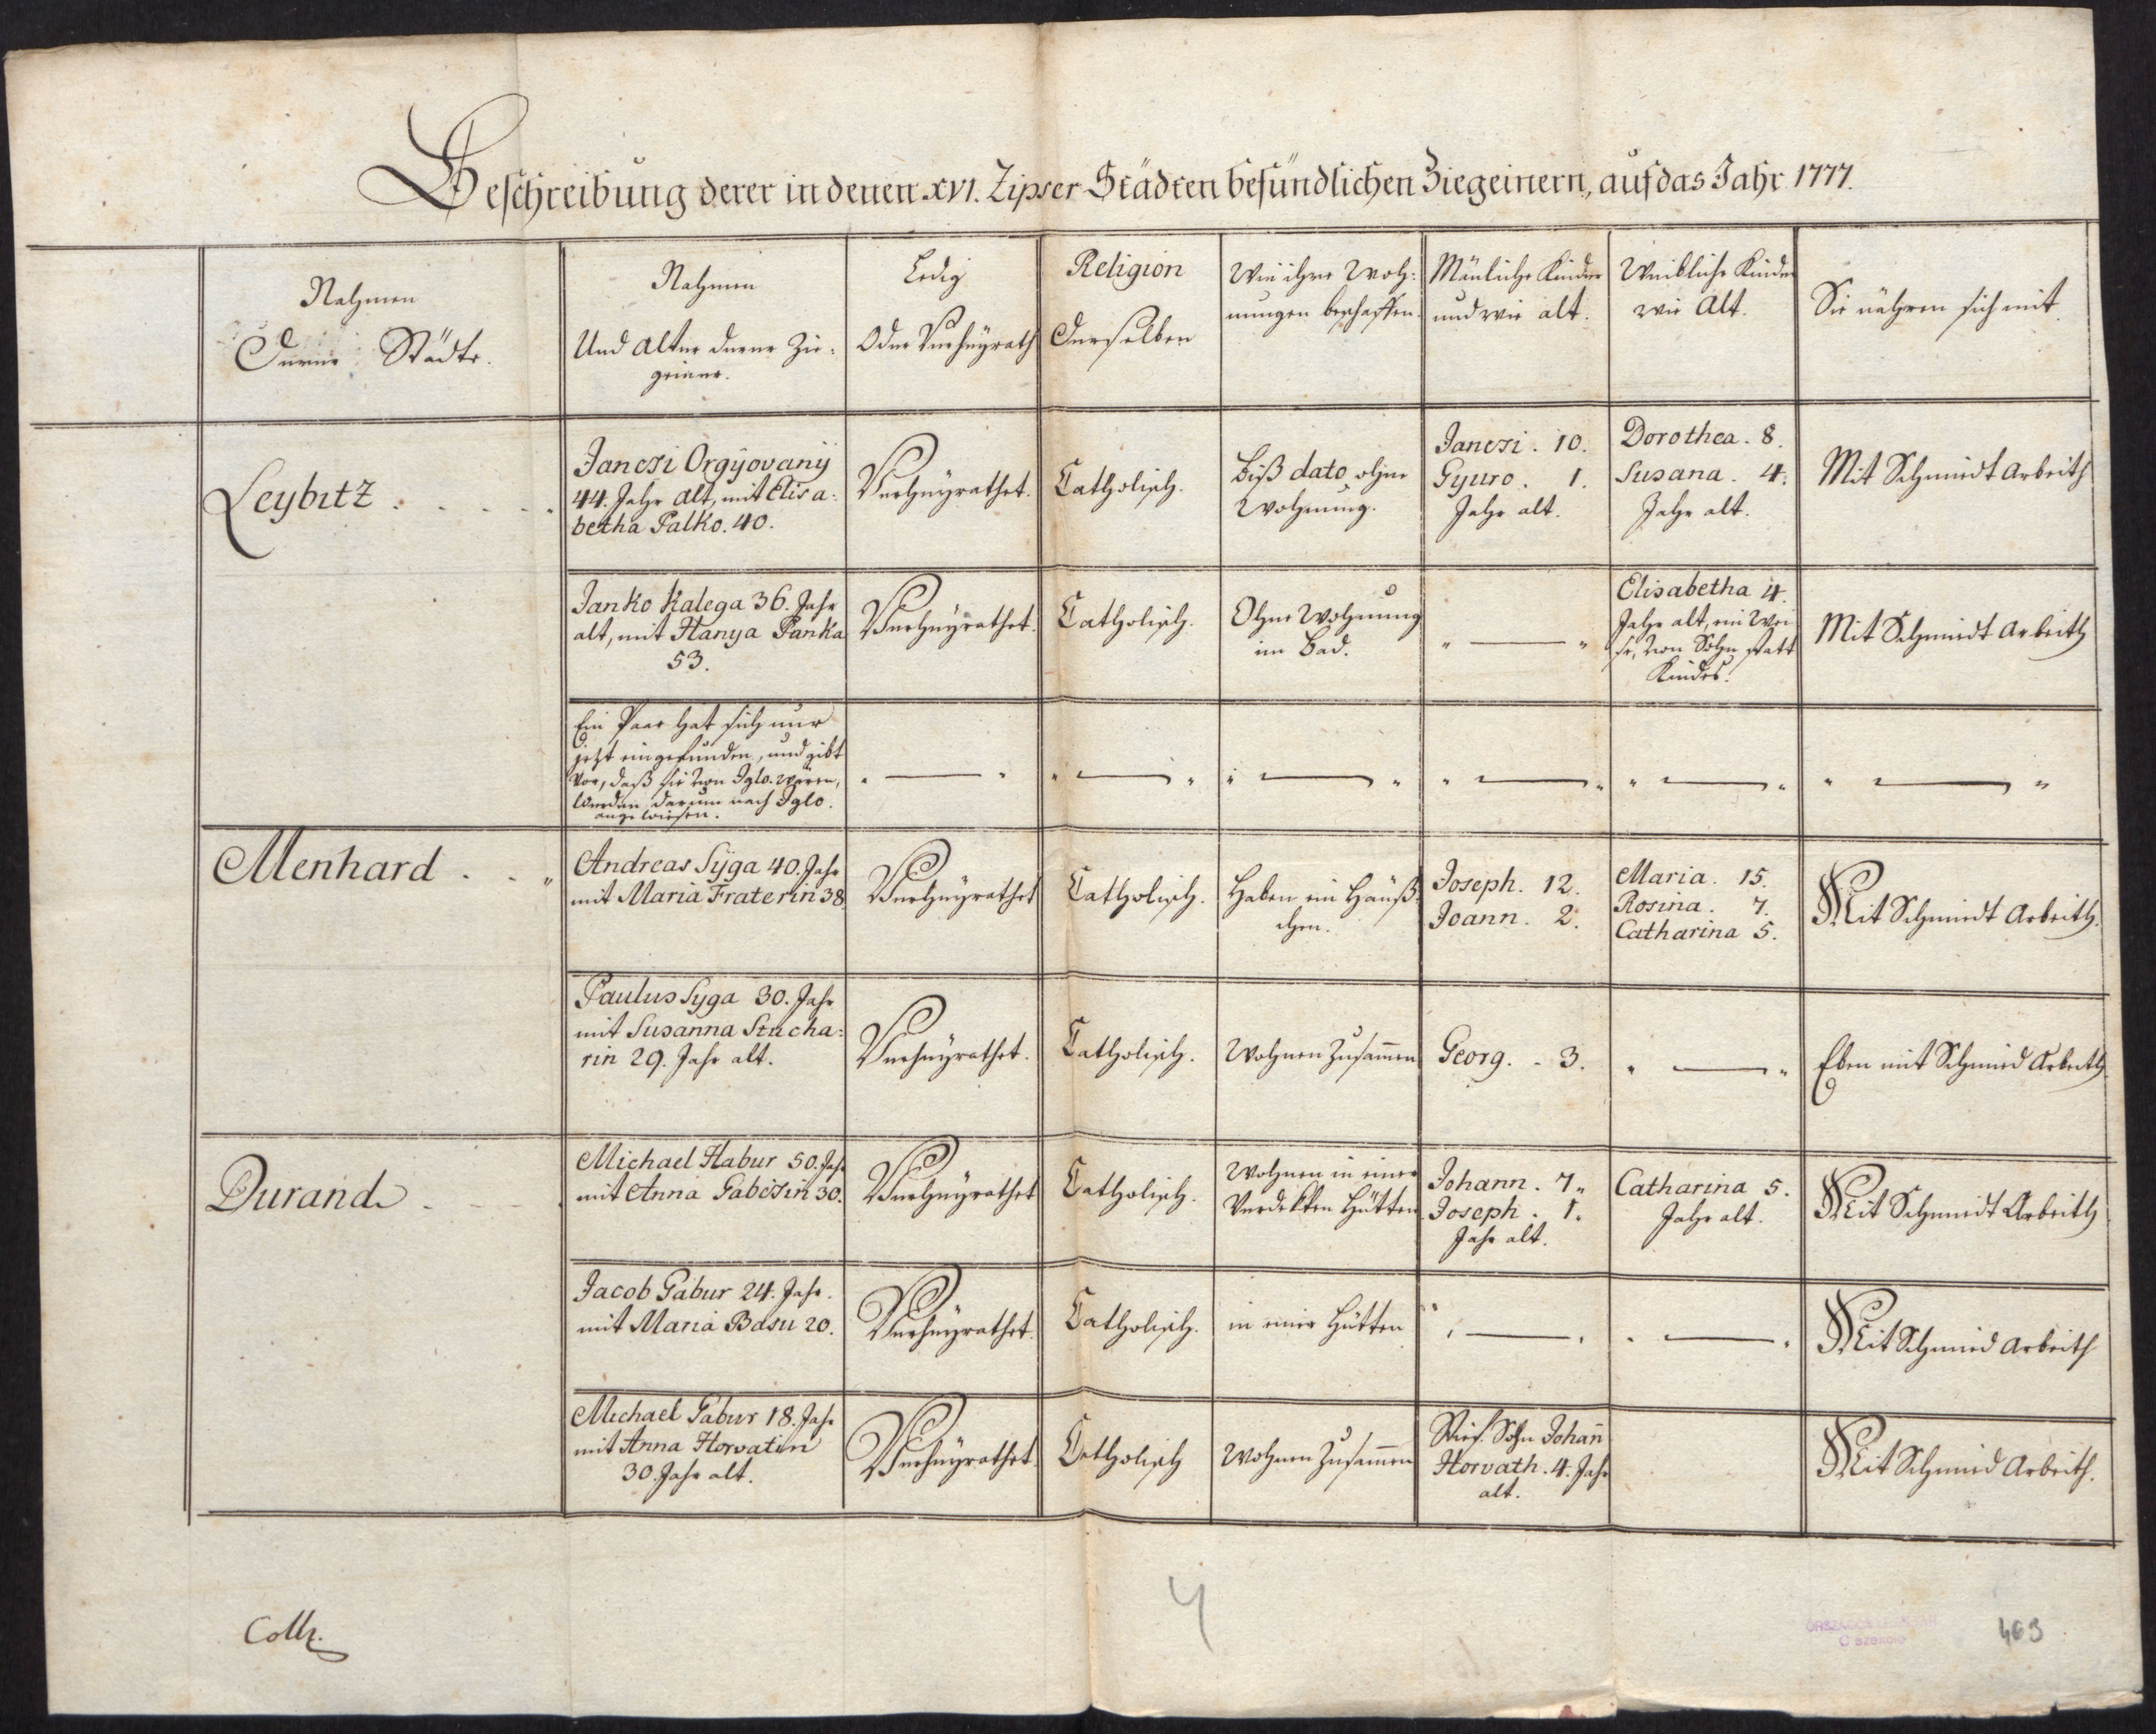 Beschreibung derer in denen XVI. Zipser Städten befündlichen Ziegeinern, auf das Jahr 1777.
Nahmen
Derer Städte.
Nahmen
Und Alter derer Zie-
geiner.
Ledig
Oder Verheÿrath
Religion
Derselben
Wie ihre Woh-
nungen beschaffen.
Mänliche Kinder
und wie alt.
Weibliche Kinder
wie Alt.
Sie nähren sich mit
Leybitz
Janczi Orgÿovanÿ
44. Jahr alt, mit Elisa-
betha Palko. 40.
Verheÿrathet.
Catholisch.
biß dato ohne
Wohnung.
Janczi . 10.
Gyuro . 1.
Jahr alt.
Dorothea . 8.
Susana . 4.
Jahr alt.
Mit Schmiedt Arbeith
Janko Kalega 36. Jahr
alt, mit Hanya Panka
53.
Verheÿrathet.
Catholisch.
Ohne Wohnung
im Bad.
Elisabetha 4.
Jahr alt, ein Wei
se, von Sohn statt
Kindes.
Mit Schmiedt Arbeith
Ein Paar hat sich nur
jetzt eingefunden, und gibt
vor, daß sie von Iglo. wären,
werden darum nach Iglo.
angewiesen.
Menhard
Andreas Sÿga 40. Jahr
mit Maria Fraterin 38.
Verheÿrathet
Catholisch.
Haben ein Häuß-
chen.
Joseph. 12.
Joann. 2.
Maria. 15.
Rosina. 7.
Catharina 5.
Mit Schmiedt Arbeith.
Paulus Syga 30. Jahr
mit Susanna Stucha-
rin 29. Jahr alt.
Verheÿrathet.
Catholisch.
Wohnen zusam̄en
Georg. 3.
Eben mit Schmied Arbeith
Durand
Michael Habur 50. Jahr
mit Anna Gabczin 30.
Verheÿrathet
Catholisch.
Wohnen in einer
Verdekten Hütten
Johann. 7.
Joseph. 1.
Jahr alt.
Catharina 5.
Jahr alt.
Mit Schmiedt Arbeith
Jacob Gabur 24. Jahr.
mit Maria Basu 20.
Verheÿrathet.
Catholisch.
in einer Hütten
Mit Schmied Arbeith
Michael Gabur 18. Jahr
mit Anna Horvatin
30. Jahr alt.
Verheÿrathet.
Catholisch
Wohnen zusam̄en
Stief. Sohn Johan̄
Horvath. 4. Jahr
alt.
Mit Schmied Arbeith.
4
463